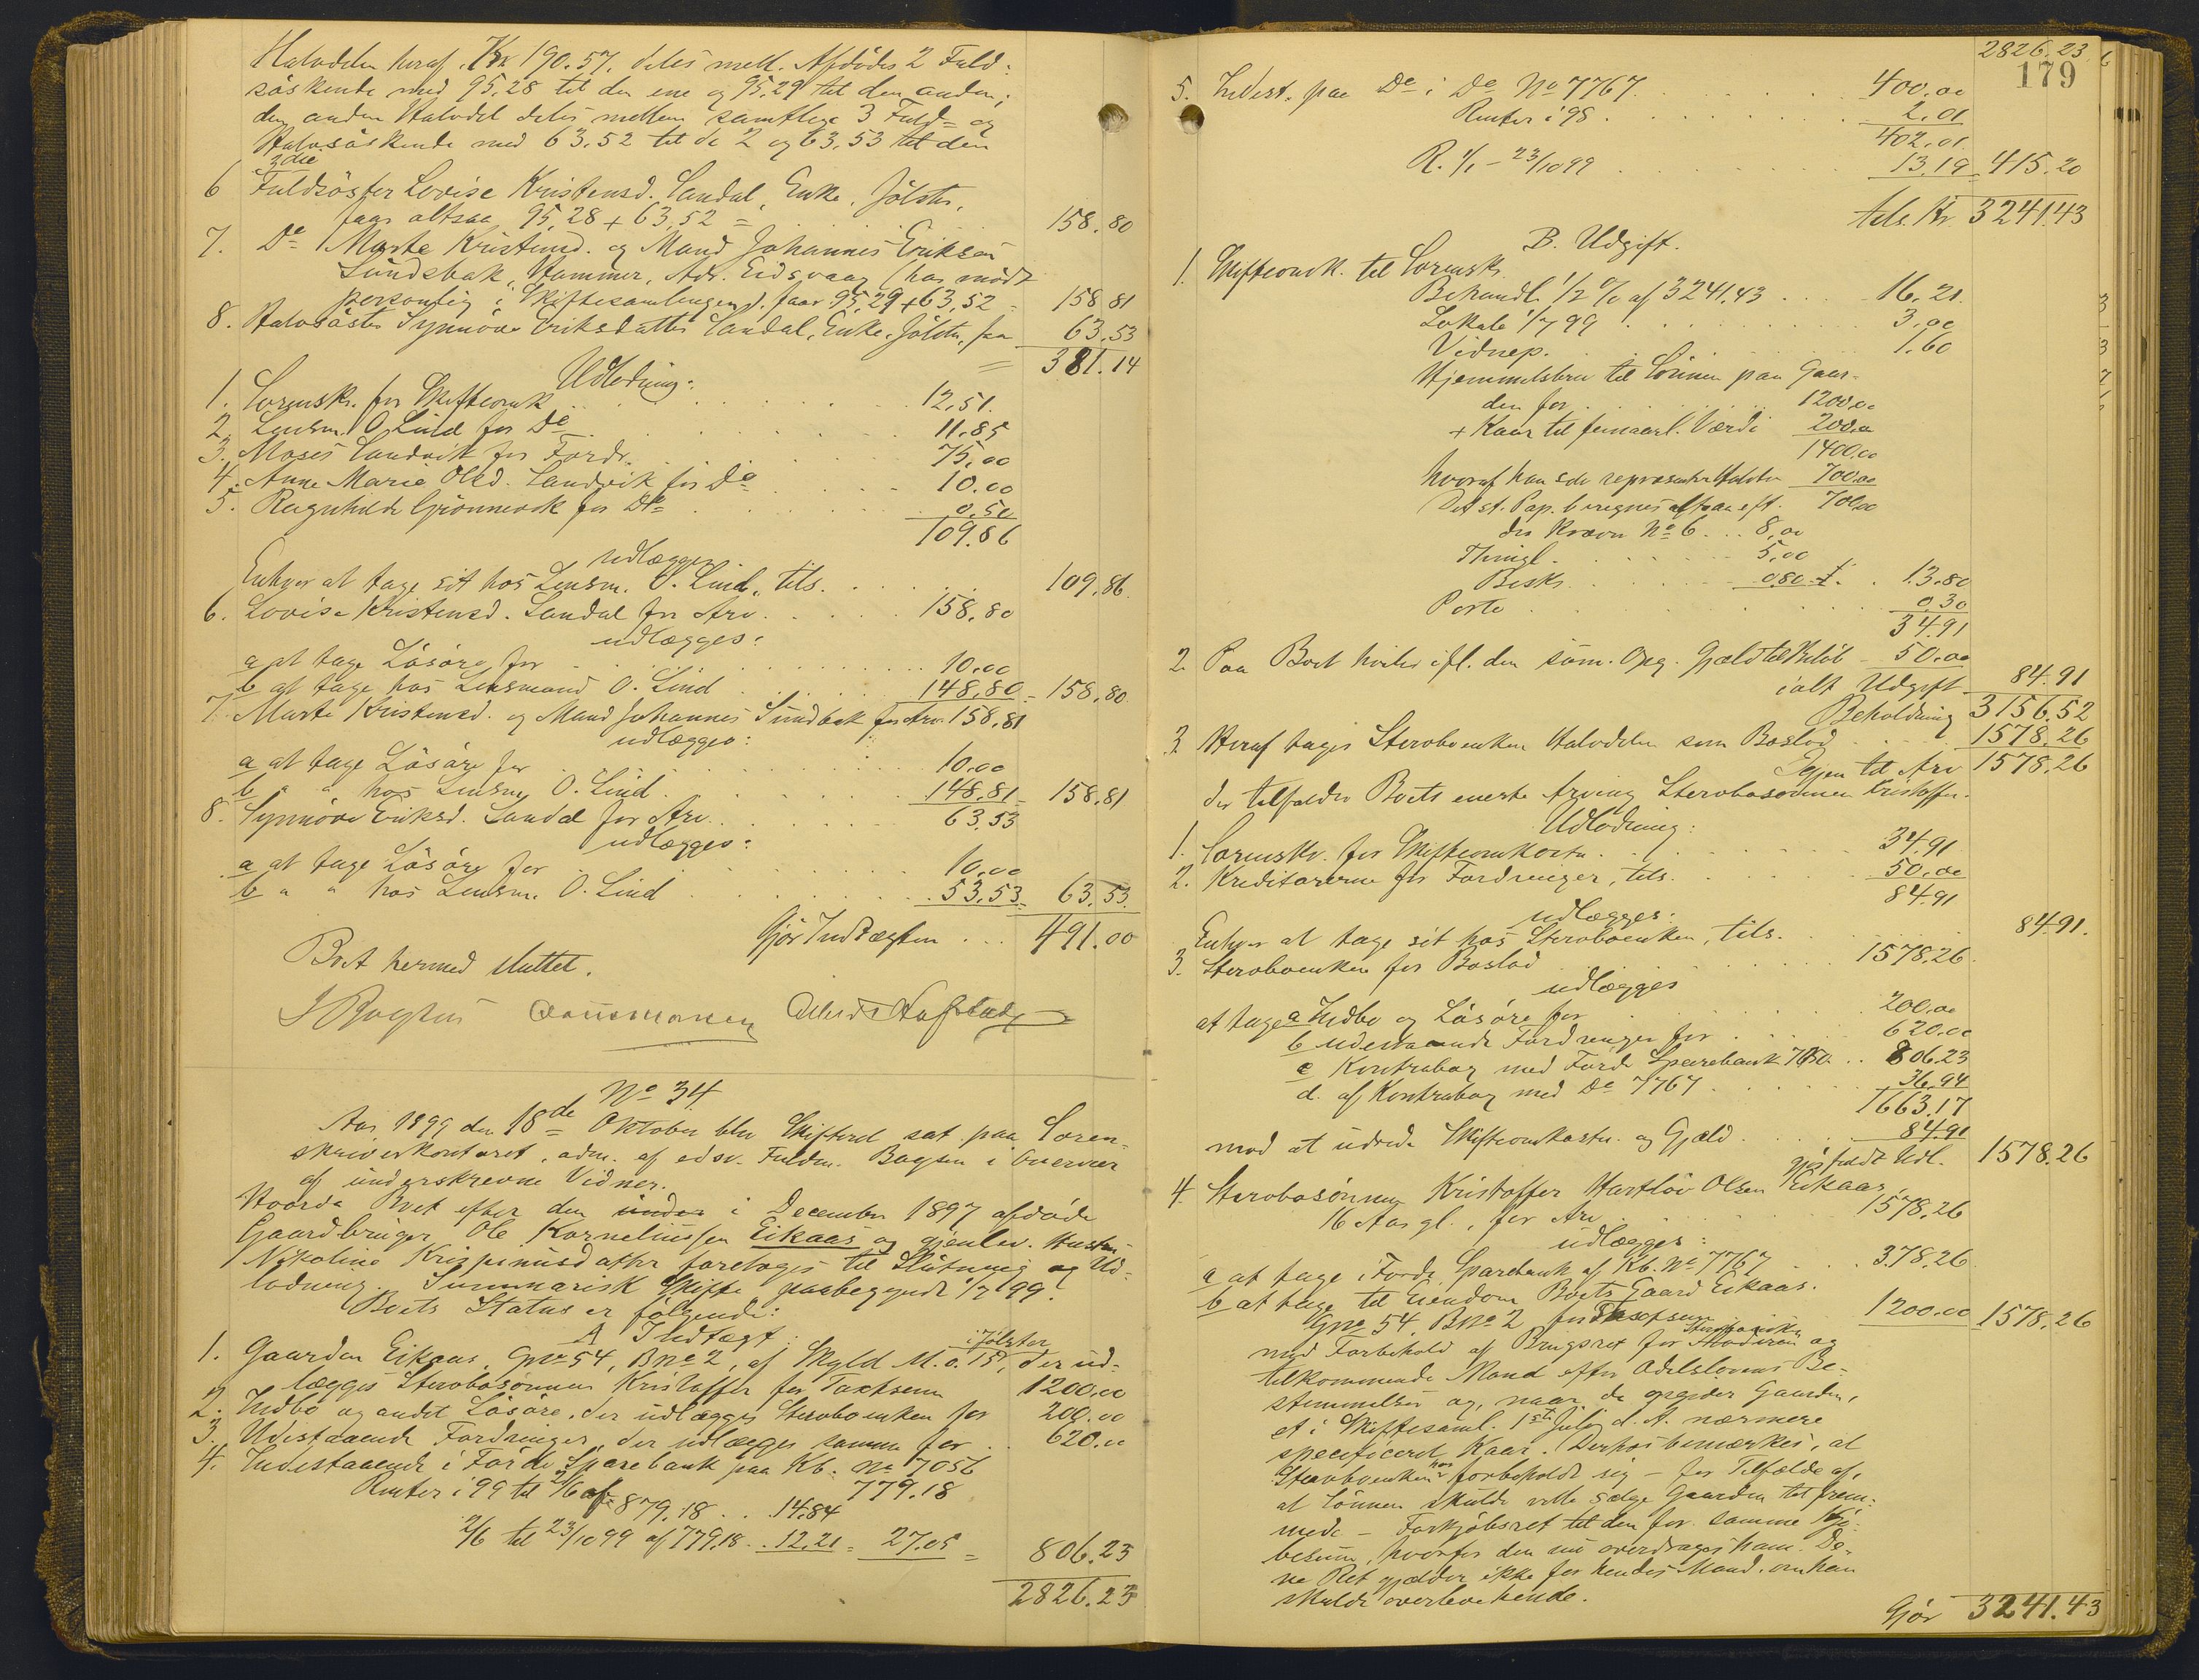 Halvdelen heraf, Kr 190.57, deles mell. Afdødes 2 Fuld-
søskende med 95.28 til den ene og 95.29 til den anden;
den anden Halvdel deles mellem samtlige 3 Fuld- og
Halvsøskende med 63.52 til de 2 og 63.53 til den
3die
6 Fuldsøster Lovise Kristensd. Sandal, Enke, Jølster,
faar altsaa 95,28 + 63,52 = 158.80
7. Do Marte Kristensd. og Mand Johannes Eriksen
Sundsbak, Hammer, Adr. Eidsvaag (har mødt
personlig i Skiftesamlingen), faar 95,29 + 63,52 = 158 81
8. Halvsøster Synnøve Eriksdatter Sandal, Enke, Jølster, faar 63.53
= 381.14
Udlodning:
1. Sorenskr. for Skifteomk. 12.51.
2. Lensm. O. Lind for Do 11.85
3. Moses Sandvik for Fordr. 75.00
4. Anne Marie Olsd. Sandvik for Do 10.00
5. Ragnhilde Grønnevik for Do 0.50
109.86
udlægges
Enhver at tage sit hos Lensm. O. Lind, tils. 109.86.
6. Lovise Kristensd. Sandal for Arv. 158.80
udlægges:
a at tage Løsøre for 10.00
b at tage hos Lensmand O. Lind 148,80 = 158,80
7. Marte Kristensd. og Mand Johannes Sundbak for Arv. 158.81
udlægges:
a at tage Løsøre for 10.00
b " " hos Lensm. O. Lind 148,81 = 158,81
8. Synnøve Eriksd. Sandal for Arv. 63.53
udlægges:
a at tage Løsøre for 10.00
b " " hos Lensm. O. Lind 53.53 63.53.
Gjør Indtægten 491.00
Boet hermed sluttet.
No 34
Aar 1899 den 18de Oktober blev Skifteret sat paa Soren-
skriverkontoret, adm. af edsv. Fuldm. Bøgsen i Overvær
af underskrevne Vidner.
Hvorda Boet efter den under i December 1897 afdøde
Gaardbruger Ole Korneliussen Eikaas og gjenlev. Hustru
Nikoline Krispinusdatter foretoges til Slutning og Ud-
lodning. Summarisk Skifte paabegyndt 1/7 99.
Boets Status er følgende:
A Indtægt:
i Jølster
1. Gaarden Eikaas, Gno 54, Bno 2, af Skyld M. 0.15, der ud-
lægges Sterbosønnen Kristoffer for Taxtsum 1200.00
2. Indbo og andet Løsøre, der udlægges Sterboenken for 200.00
3. Udestaaende Fordringer, der udlægges samme for 620.00
4. Indestaaende i Førde Sparebank paa Kb. No 7056 779.18
Renter i 99 til 2/6 af 879.18 14.84
2/6 til 23/10 99 af 779.18 12.21 = 27.05 = 806.23
2826.23
2826.23
179
5. Indest. paa Do i Do No 7767 400.00
Renter i 98 2.01
402.01
R. 1/1 - 23/10 99 13.19 415.20
tils. Kr. 3241.43
B. Udgift.
1. Skifteomk. til Sorensk.
Behandl. 1/2 % af 3241.43 16.21.
Lokale 1/7 99 3.00
Vidnep. 1.60
Hjemmelsbrev til Sønnen paa Gaar-
den for 1200.00
+ Kaar til femaarl. Værdi 200.00
1400.00
hvoraf han selv repræsenter Halvdel 700.00
Det st. Pap. beregnes altsaa eft. 700.00
der kræver No 6 8.00
Thingl. 5.00
Besk. 0.80 13.80
Porto 0.30
34.91
2. Paa Boet hviler ifl. den sum. Opg. Gjæld til Beløb 50.00
ialt Udgift 84.91
Beholdning 3156.52
3. Heraf tages Sterboenken Halvdelen som Boslod 1578.26
Igjen til Arv 1578.26
der tilfalder Boets eneste Arving Sterbosønnen Kristoffer.
Udlodning:
1. Sorenskr. for Skifteomkostn. 34.91
2. Kreditorerne for Fordringer, tils. 50.00
84.91
udlægges:
Enhver at tage sit hos Sterboenken, tils. 84.91.
3. Sterboenken for Boslod 1578.26
udlægges
at tage a Indbo og Løsøre for 200.00
b udestaaende Fordringer for 620.00
c Kontrabog med Førde Sparebank 7056 806.23
d. af Kontrabog med Do 7767 36.94
1663.17
mod at udrede Skifteomkostn. og Gjæld 84.91
gjør fuldt Udl. 1578.26
4. Sterbosønnen Kristoffer Hartløv Olsen Eikaas,
16 Aar gl., for Arv 1578,26
udlægges:
a at tage i Førde Sparebank af Kb. No 7767 378.26
b at tage til Eiendom Boets Gaard Eikaas.
Gno 54, Bno 2 for Taxtsum 1200.00 1578.26
Sterboenken
med Forbehold af Brugsret for Moderen og
tilkommende Mand efter Odelslovens Be-
stemmelser og, naar de opgiver Gaarden,
et i Skiftesaml. 1ste Juli d. A. nærmere
specificeret Kaar. Derhos bemærkes, at
Sterboenken har forbeholdt sig - for Tilfælde af,
at Sønnen skulde ville sælge Gaarden til frem-
mede - Forkjøbsret til den for samme Kjø-
besum, hvorfor den nu overdrages ham. Den-
ne Ret gjælder ikke for hendes Mand, om han
skulde overleve hende.
Gjør 3241.43